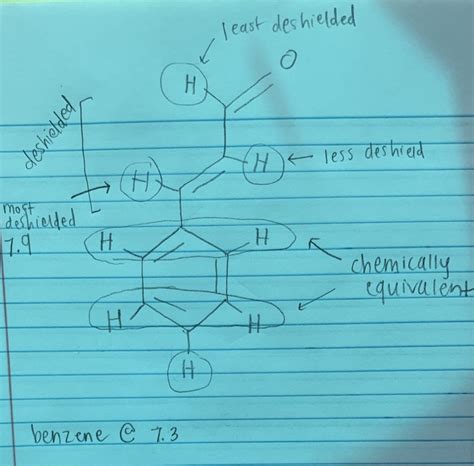 least deshielded
O
H
deshielded
H
less deshield
H
most
deshielded
7.9
H
H
chemically
equivalent
H
H
H
benzene @ 7.3